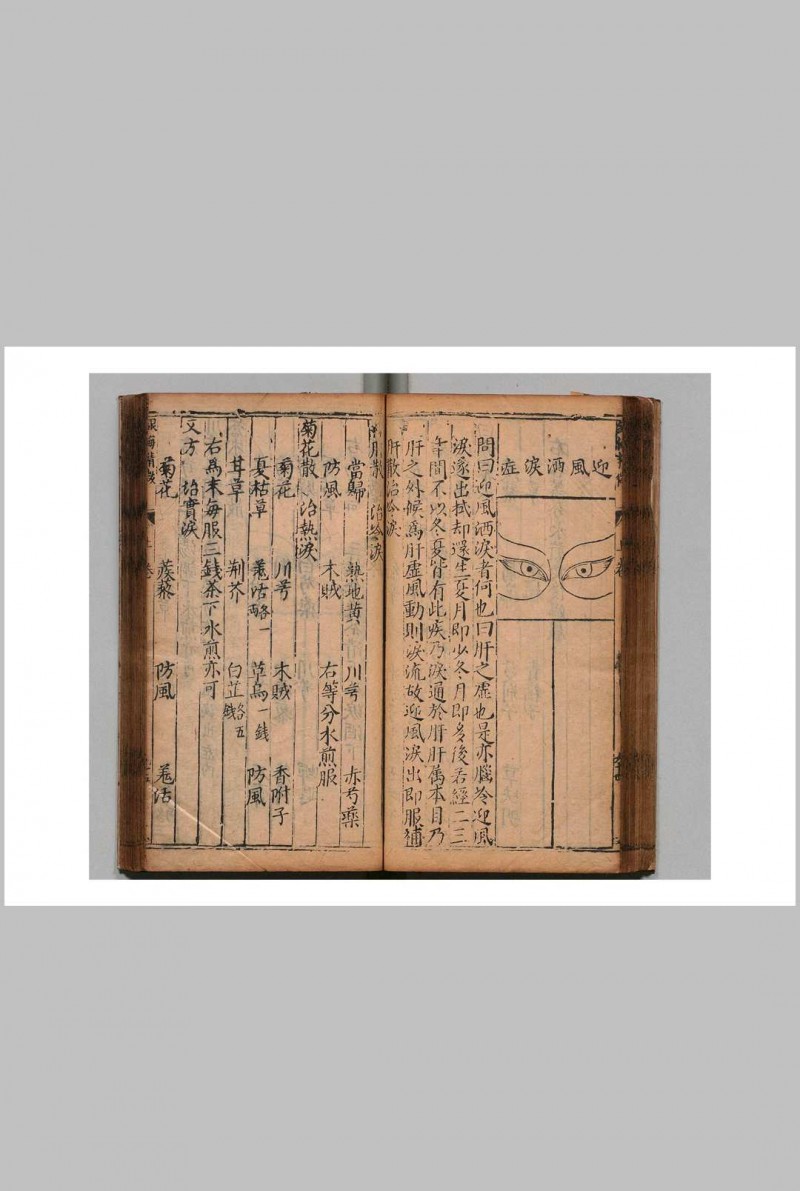 迎風洒淚症
問曰迎風洒淚者何也曰肝之虛也是亦腦冷迎風
淚遂出拭却還生夏月即少冬月即多後若經二三
年間不以冬夏皆有此疾乃淚通於肝肝屬木目乃
肝之外候為肝虛風動則淚流故迎風淚出即服補
肝散治冷淚
補肝散 治冷淚
當歸 熟地黃 川芎 赤芍藥
防風 木賊 右等分水煎服
菊花散 治熱淚
菊花 川芎 木賊 香附子
夏枯草 羌活 草烏一錢 防風
甘草 荊芥 白芷
右為末每服三錢茶下水煎亦可
又方 治實淚
菊花 蒺藜 防風 羌活